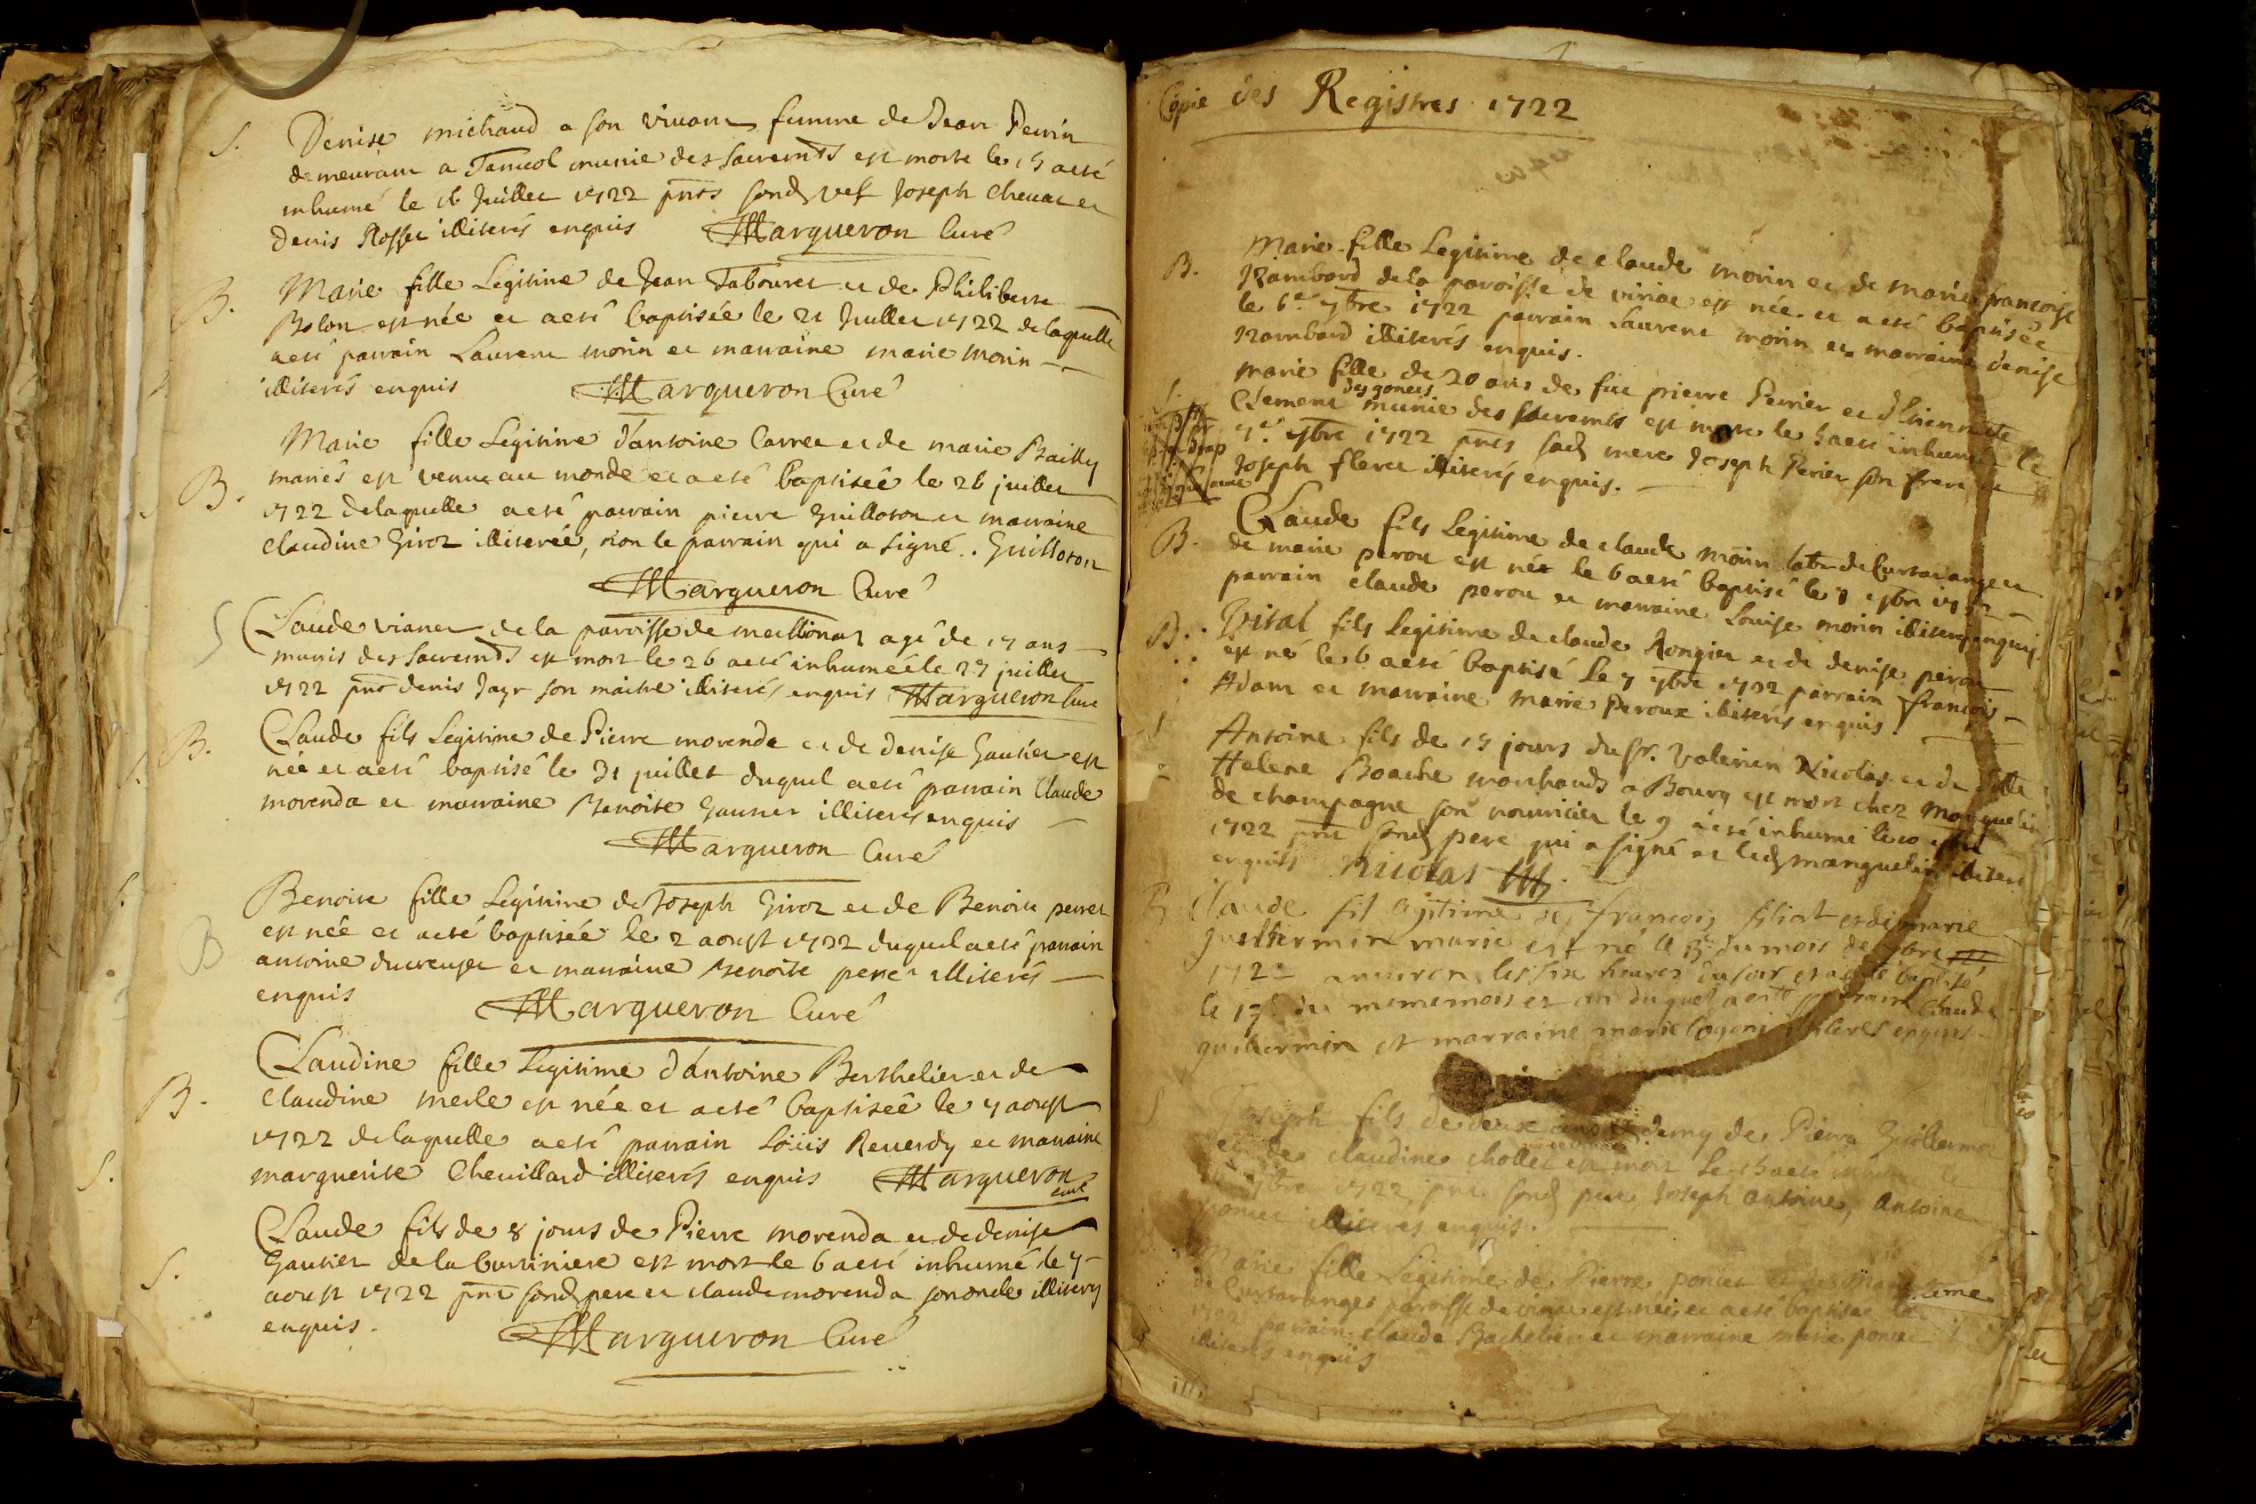 S. Denise michaud a son vivant femme de Jean Perrin
demeurant a Tanicol munie des sacremts est morte le 15 a eté
inhumé le 16 Juillet 1722 pnts sond. vef Joseph Chevat et
denis Rosset illiterés enquis Margueron Curé
B. Marie fille Legitime de Jean Tabouret et de Philiberte
Bolon est née et a eté baptisée le 21 Juillet 1722 de laquelle
a eté parrain Laurent morin et marraine marie morin
illiterés enquis Margueron Curé
B. Marie fille Legitime d'antoine Carret et de marie Bailly
mariés est venue au monde et a eté baptisée le 26 juillet
1722 de laquelle a eté parrain pierre Guilloton et marraine
Claudine Giroz illiterée, non le parrain qui a signé. Guilloton
Margueron Curé
S Claude vianet de la paroisse de meillonaz agé de 17 ans
munis des sacremts est mort le 26 a eté inhumée le 27 juillet
1722 pnt denis Jayr son maitre illiterés enquis Margueron Curé
B. Claude fils Legitime de Pierre morenda et de denise Gautier est
née et a eté baptisé le 31 juillet duquel a eté parrain Claude
morenda et marraine Benoite Gautier illiterés enquis
Margueron Curé
B Benoite fille Legitime de Joseph Giroz et de Benoite perret
est née et a eté baptisée le 2 aoust 1722 duquel a eté parrain
antoine ducreuset et marraine Benoite peret illiterés
enquis Margueron Curé
B. Claudine fille Legitime d'antoine Berthelier et de
Claudine merle est née et a eté baptiseé le 4 aoust
1722 de laquelle a eté parrain Loüis Reverdy et maraine
marguerite Chevillard illiterés enquis Margueron
curé
S. Claude fils de 8 jours de Pierre morenda et de denise
Gautier de la bussiniere est mort le 6 a eté inhumé le 7
aoust 1722 pnt sond. pere et claude morenda son oncle illiterés
enquis. Margueron Curé
Copie des Registres 1722
B. Marie fille Legitime de claude morin et de marie francoise
Rambord de la paroisse de viriat est née et a eté baptisée
le 6e 7bre 1722 parrain Laurent morin et marraine denise
Rambord illiterés enquis.
S. marie fille de 20 ans de feu pierre Perrier et d'Etiennette
des goneis
Clement munie des sacremts est morte le 3 a eté inhumée le
7e 7bre 1722 pnts sad. mere Joseph Perier son frere et
Joseph fleret illiterés enquis.
B. Claude fils Legitime de claude morin labr de Curtarangea et
de marie perou est né le 6 a eté baptisé le 7 7bre 1722
parrain claude perou et marraine Louise morin illiterés enquis
B. Vital fils Legitime de claude Rongier et de denise perou
est né le 6 a eté baptisé le 7 7bre 1722 parrain francois
Adam et marraine marie Peroux illiterés enquis
S Antoine fils de 15 jours du Sr. valerien Nicolas et de dlle
Helene Boache marchands a Bourg est mort chez manguelin
de champagne son nouricier le 9 a eté inhumé le 10 7bre
1722 pnt sond. pere qui a signé et led. manguelin illiteré
enquis Nicolas
B Claude fil Legitime de francois filiat et de marie
guillermin marie est né le 15 du mois de 7bre
1722 environ les six heures du soir et a eté baptisé
le 17e du meme mois et an duquel a eté parrain Claude
guillermin et marraine marie illiterés enquis
S Joseph fils de deux ans et demy de Pierre Guillermin
et de claudine chollet est mort le 13 a eté inhumé le
7bre 1722 pnt sond pere Joseph antoine, Antoine
poncet illiterés enquis.
Marie fille Legitime de Pierre poncet
de Curtaranges paroisse de viriat est née et a eté baptisée le
parrain claude Bachelier et marraine marie poncet
illiterés enquis